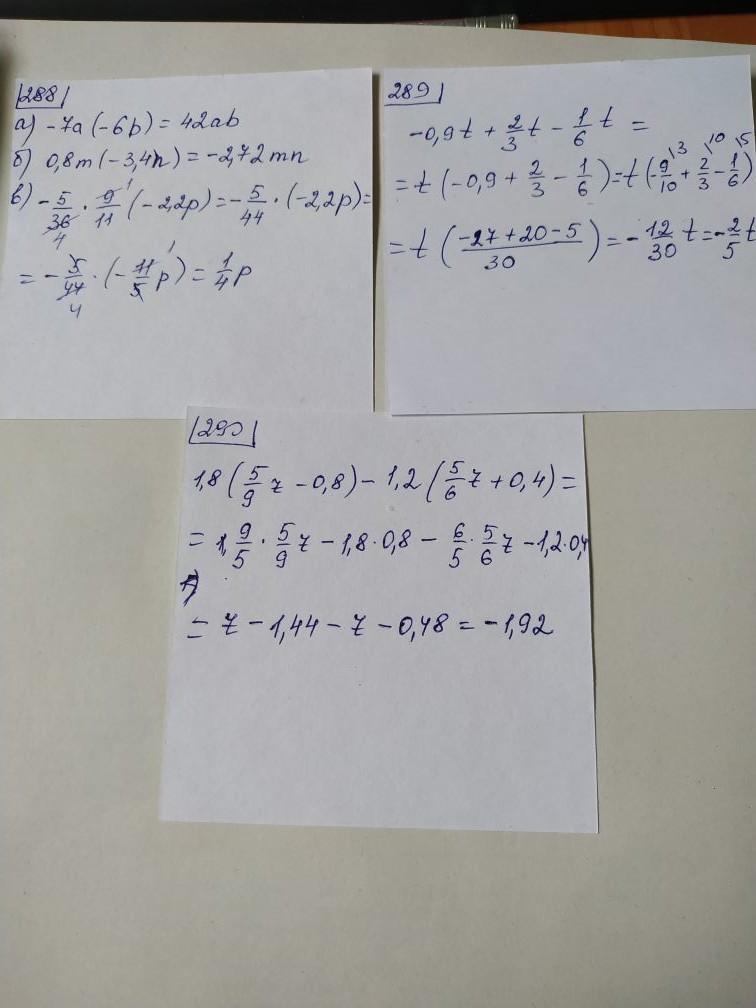 288
а) -7a(-6b) = 42ab
б) 0,8m(-3,4n) = -2,72mn
в) -5/36 · 9/11 (-2,2p) = -5/44 · (-2,2p) =
4 1
= -5/44 · (-11/5 p) = 1/4 p
4 1
289
-0,9t + 2/3 t - 1/6 t =
= t(-0,9 + 2/3 - 1/6) = t(-9/10 \3 + 2/3 \10 - 1/6 \5)
= t((-27+20-5)/30) = -12/30 t = -2/5 t
290
1,8(5/9 z - 0,8) - 1,2(5/6 z + 0,4) =
= 9/5 · 5/9 z - 1,8·0,8 - 6/5 · 5/6 z - 1,2·0,4
= z - 1,44 - z - 0,48 = -1,92